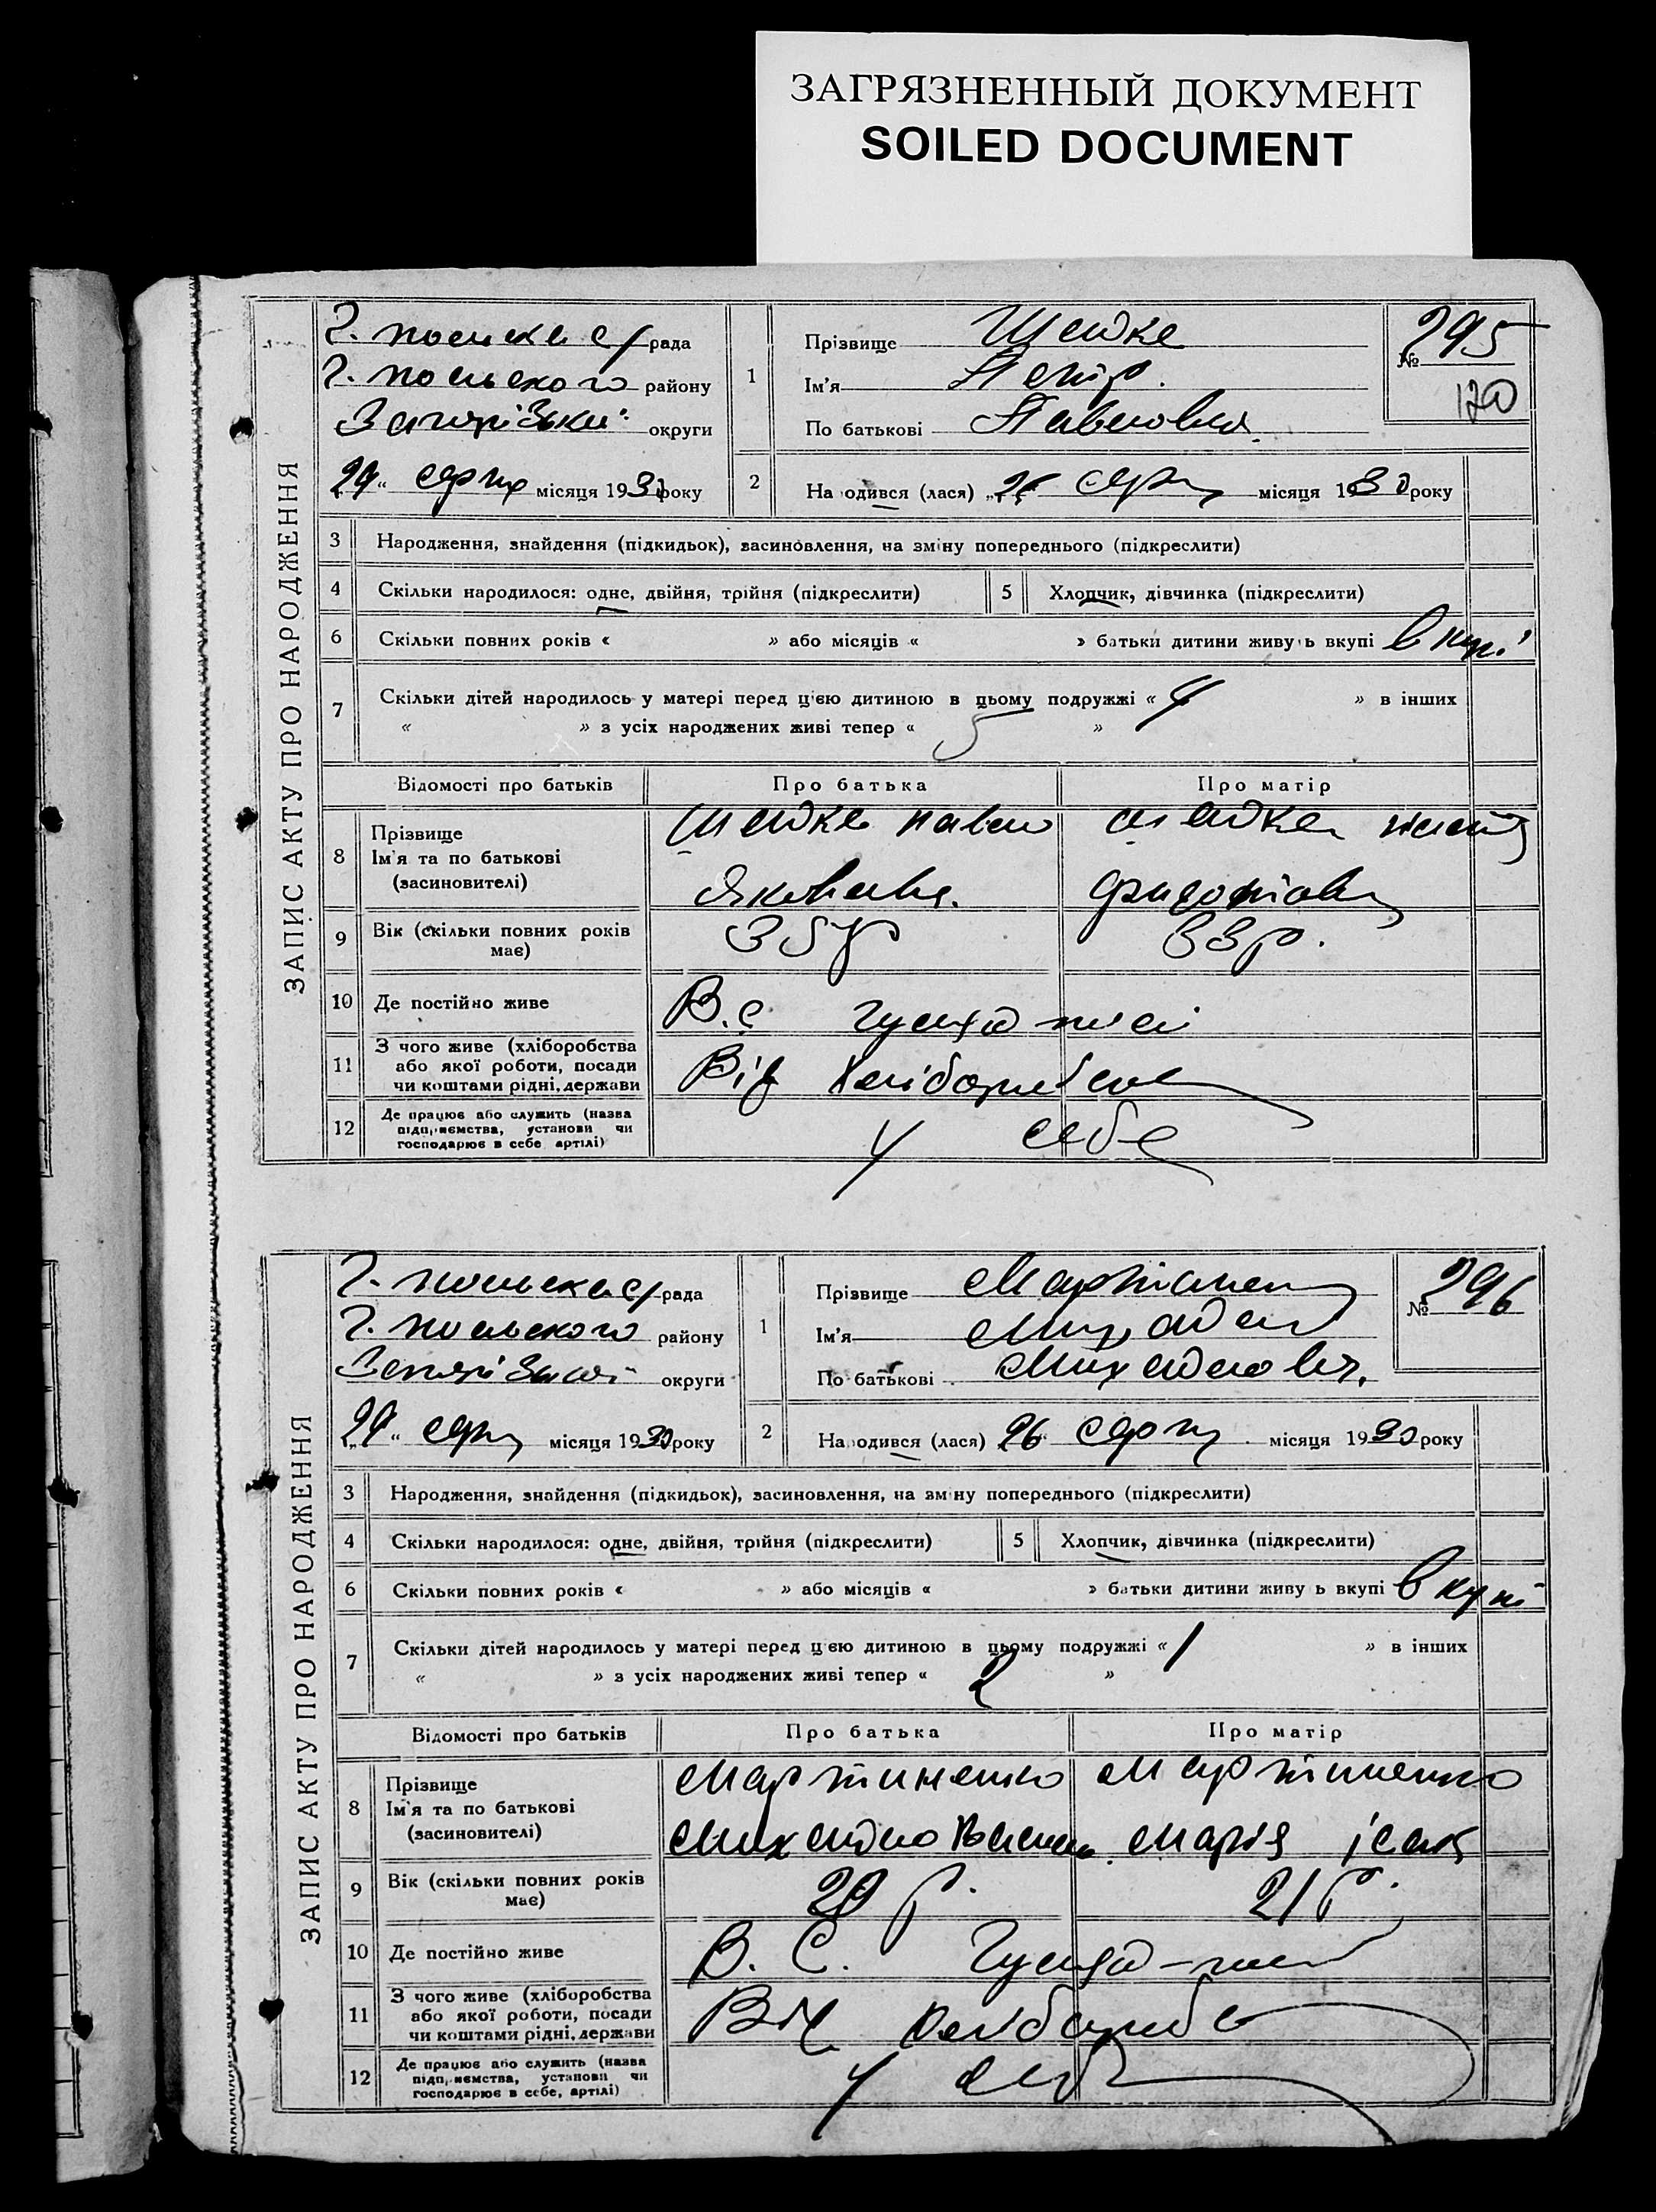 ЗАГРЯЗНЕННЫЙ ДОКУМЕНТ
SOILED DOCUMENT
ЗАПИС АКТУ ПРО НАРОДЖЕННЯ
Г. рада
Г. польського району
округи
29 серп місяця 1930 року
1
Прізвище Шейке
Ім'я Петр.
По батькові Павлович
№ 295
120
2
На одився (лася) „26 серп місяця 1930 року
3 Народження, знайдення (підкидьок), засиновлення, на зміну попереднього (підкреслити)
4 Скільки народилося: одне, двійня, трійня (підкреслити)
5 Хлопчик, дівчинка (підкреслити)
6 Скільки повних років « » або місяців « » батьки дитини живуть вкупі вкупі
7 Скільки дітей народилось у матері перед цією дитиною в цьому подружжі « 4 » в інших
« » з усіх народжених живі тепер « 5 »
Відомості про батьків Про батька Про матір
8 Прізвище
Ім'я та по батькові
(засиновителі)
Павло
9 Вік (скільки повних років має) 35 р 33 р.
10 Де постійно живе В. с Гуляй полі
11 З чого живе (хліборобства
або якої роботи, посади
чи коштами рідні, держави
Від
12 Де працює або служить (назва
підприємства, установи чи
господарює в себе, артілі)
У себе
ЗАПИС АКТУ ПРО НАРОДЖЕННЯ
Г. рада
Г. польського району
округи
29 „ серп місяця 1930 року
1
Прізвище Мартинен
Ім'я Михайло
По батькові Михайлович.
№ 296
2
На одився (лася) 26 серп місяця 1930 року
3 Народження, знайдення (підкидьок), засиновлення, на зміну попереднього (підкреслити)
4 Скільки народилося: одне, двійня, трійня (підкреслити)
5 Хлопчик, дівчинка (підкреслити)
6 Скільки повних років « » або місяців « » батьки дитини живу ь вкупі вкупі
7 Скільки дітей народилось у матері перед цією дитиною в цьому подружжі « 1 » в інших
« » з усіх народжених живі тепер « 2 »
Відомості про батьків Про батька Про матір
8 Прізвище
Ім'я та по батькові
(засиновителі)
Мартиненко Мартиненко
Михайло Марія Ісак
9 Вік (скільки повних років має) 29 р. 21 р.
10 Де постійно живе В. С. Гуляй-полі
11 З чого живе (хліборобства
або якої роботи, посади
чи коштами рідні, держави
Від
12 Де працює або служить (назва
підприємства, установи чи
господарює в себе, артілі)
У себе